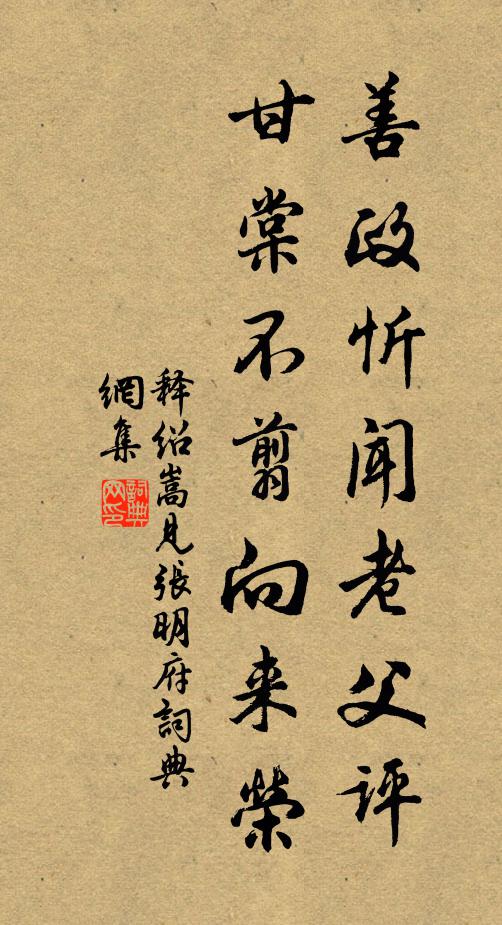 善政忻闻老父评
甘棠不翦向来荣
释绍嵩见张明府詞典
網集
詞典网印